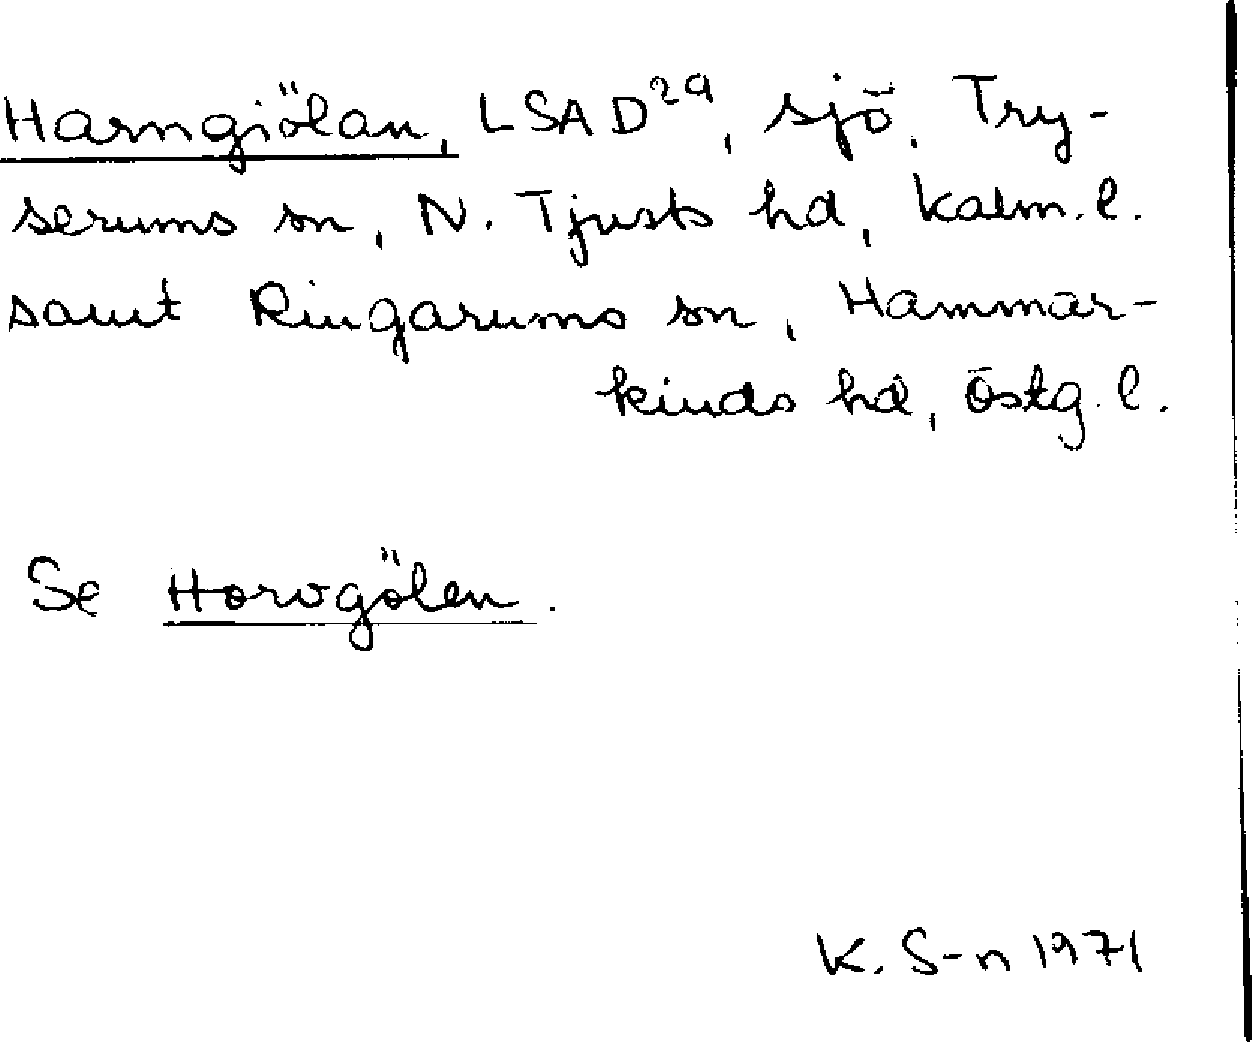 Harngiölan, LSA D²⁹, sjö. Try-
serums sn, N. Tjusts hd, Kalm. l.
samt Ringarums sn, Hammar-
kinds hd, Östg. l.
Se Horvgölen.
K. S-n 1971